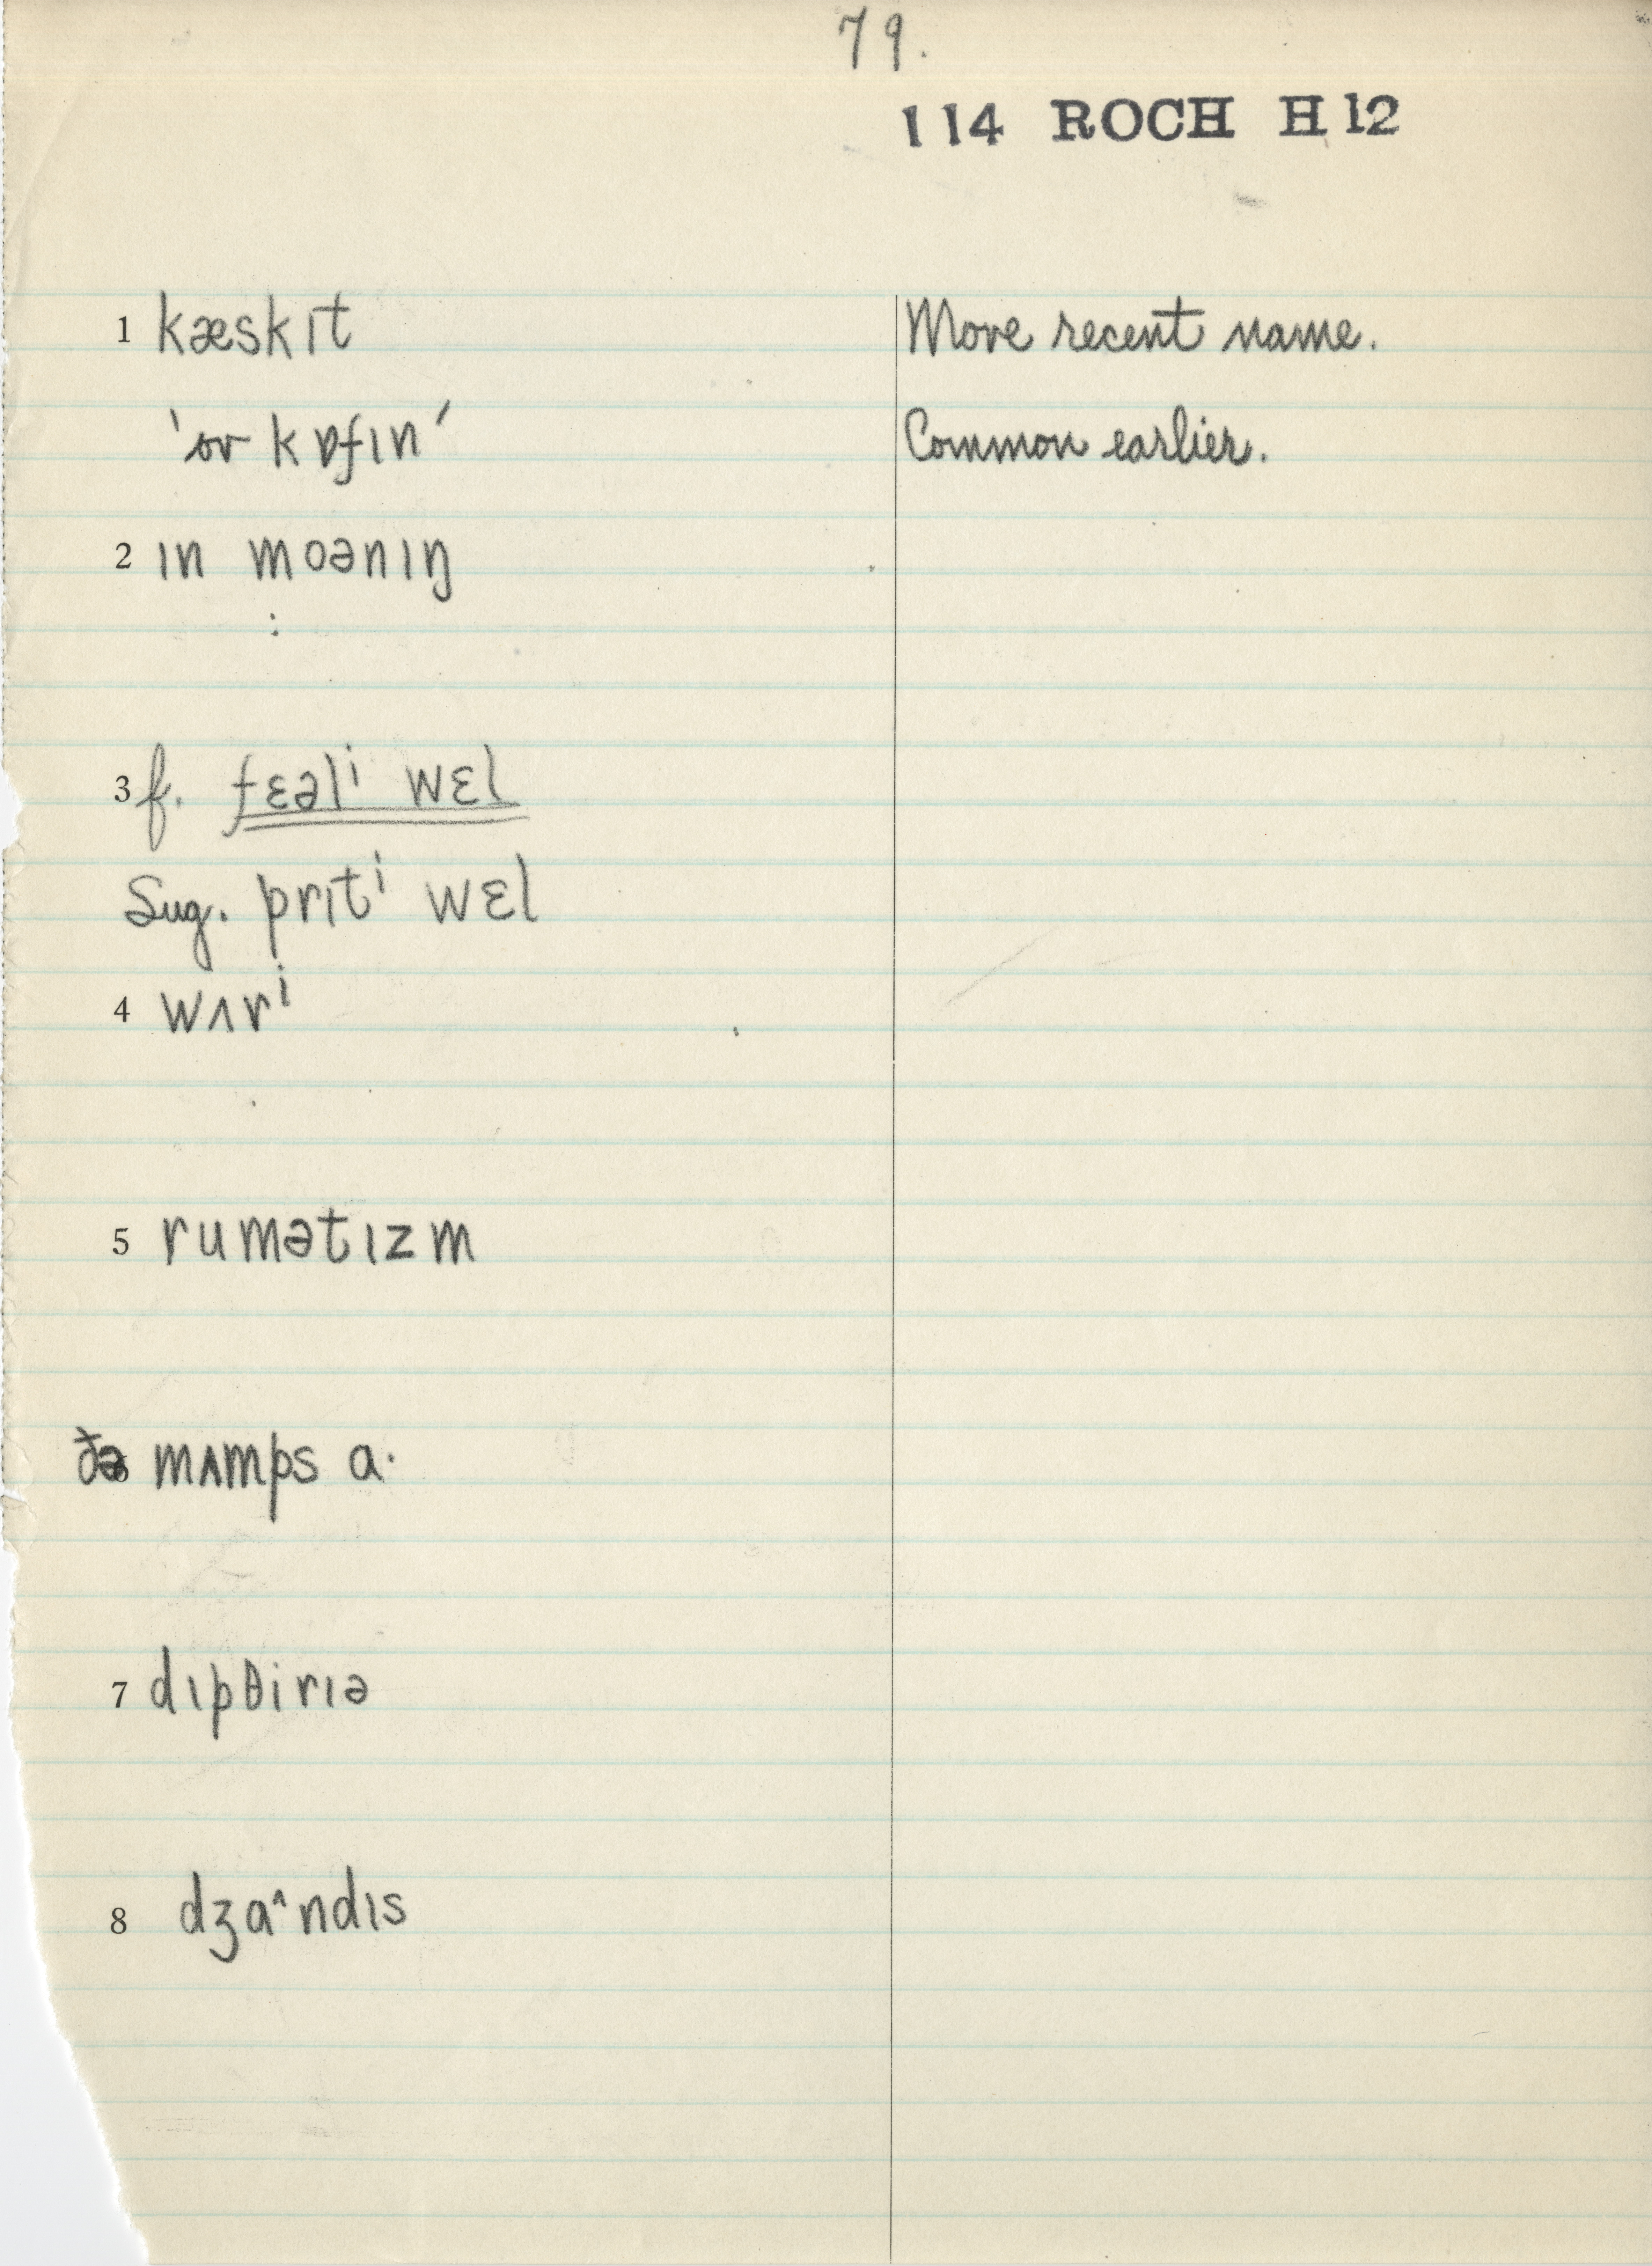 79.
114 ROCH H 12
1 kæskɪt More recent name.
'or kɒfɪn' Common earlier.
2 ɪn moənɪŋ
:
3 f. fɛəlⁱ wɛl
Sug. prɪtⁱ wɛl
4 wʌrⁱ
5 rumətɪzm
6 ðə mʌmps a·
7 dɪpθirɪə
8 dʒa^ndɪs